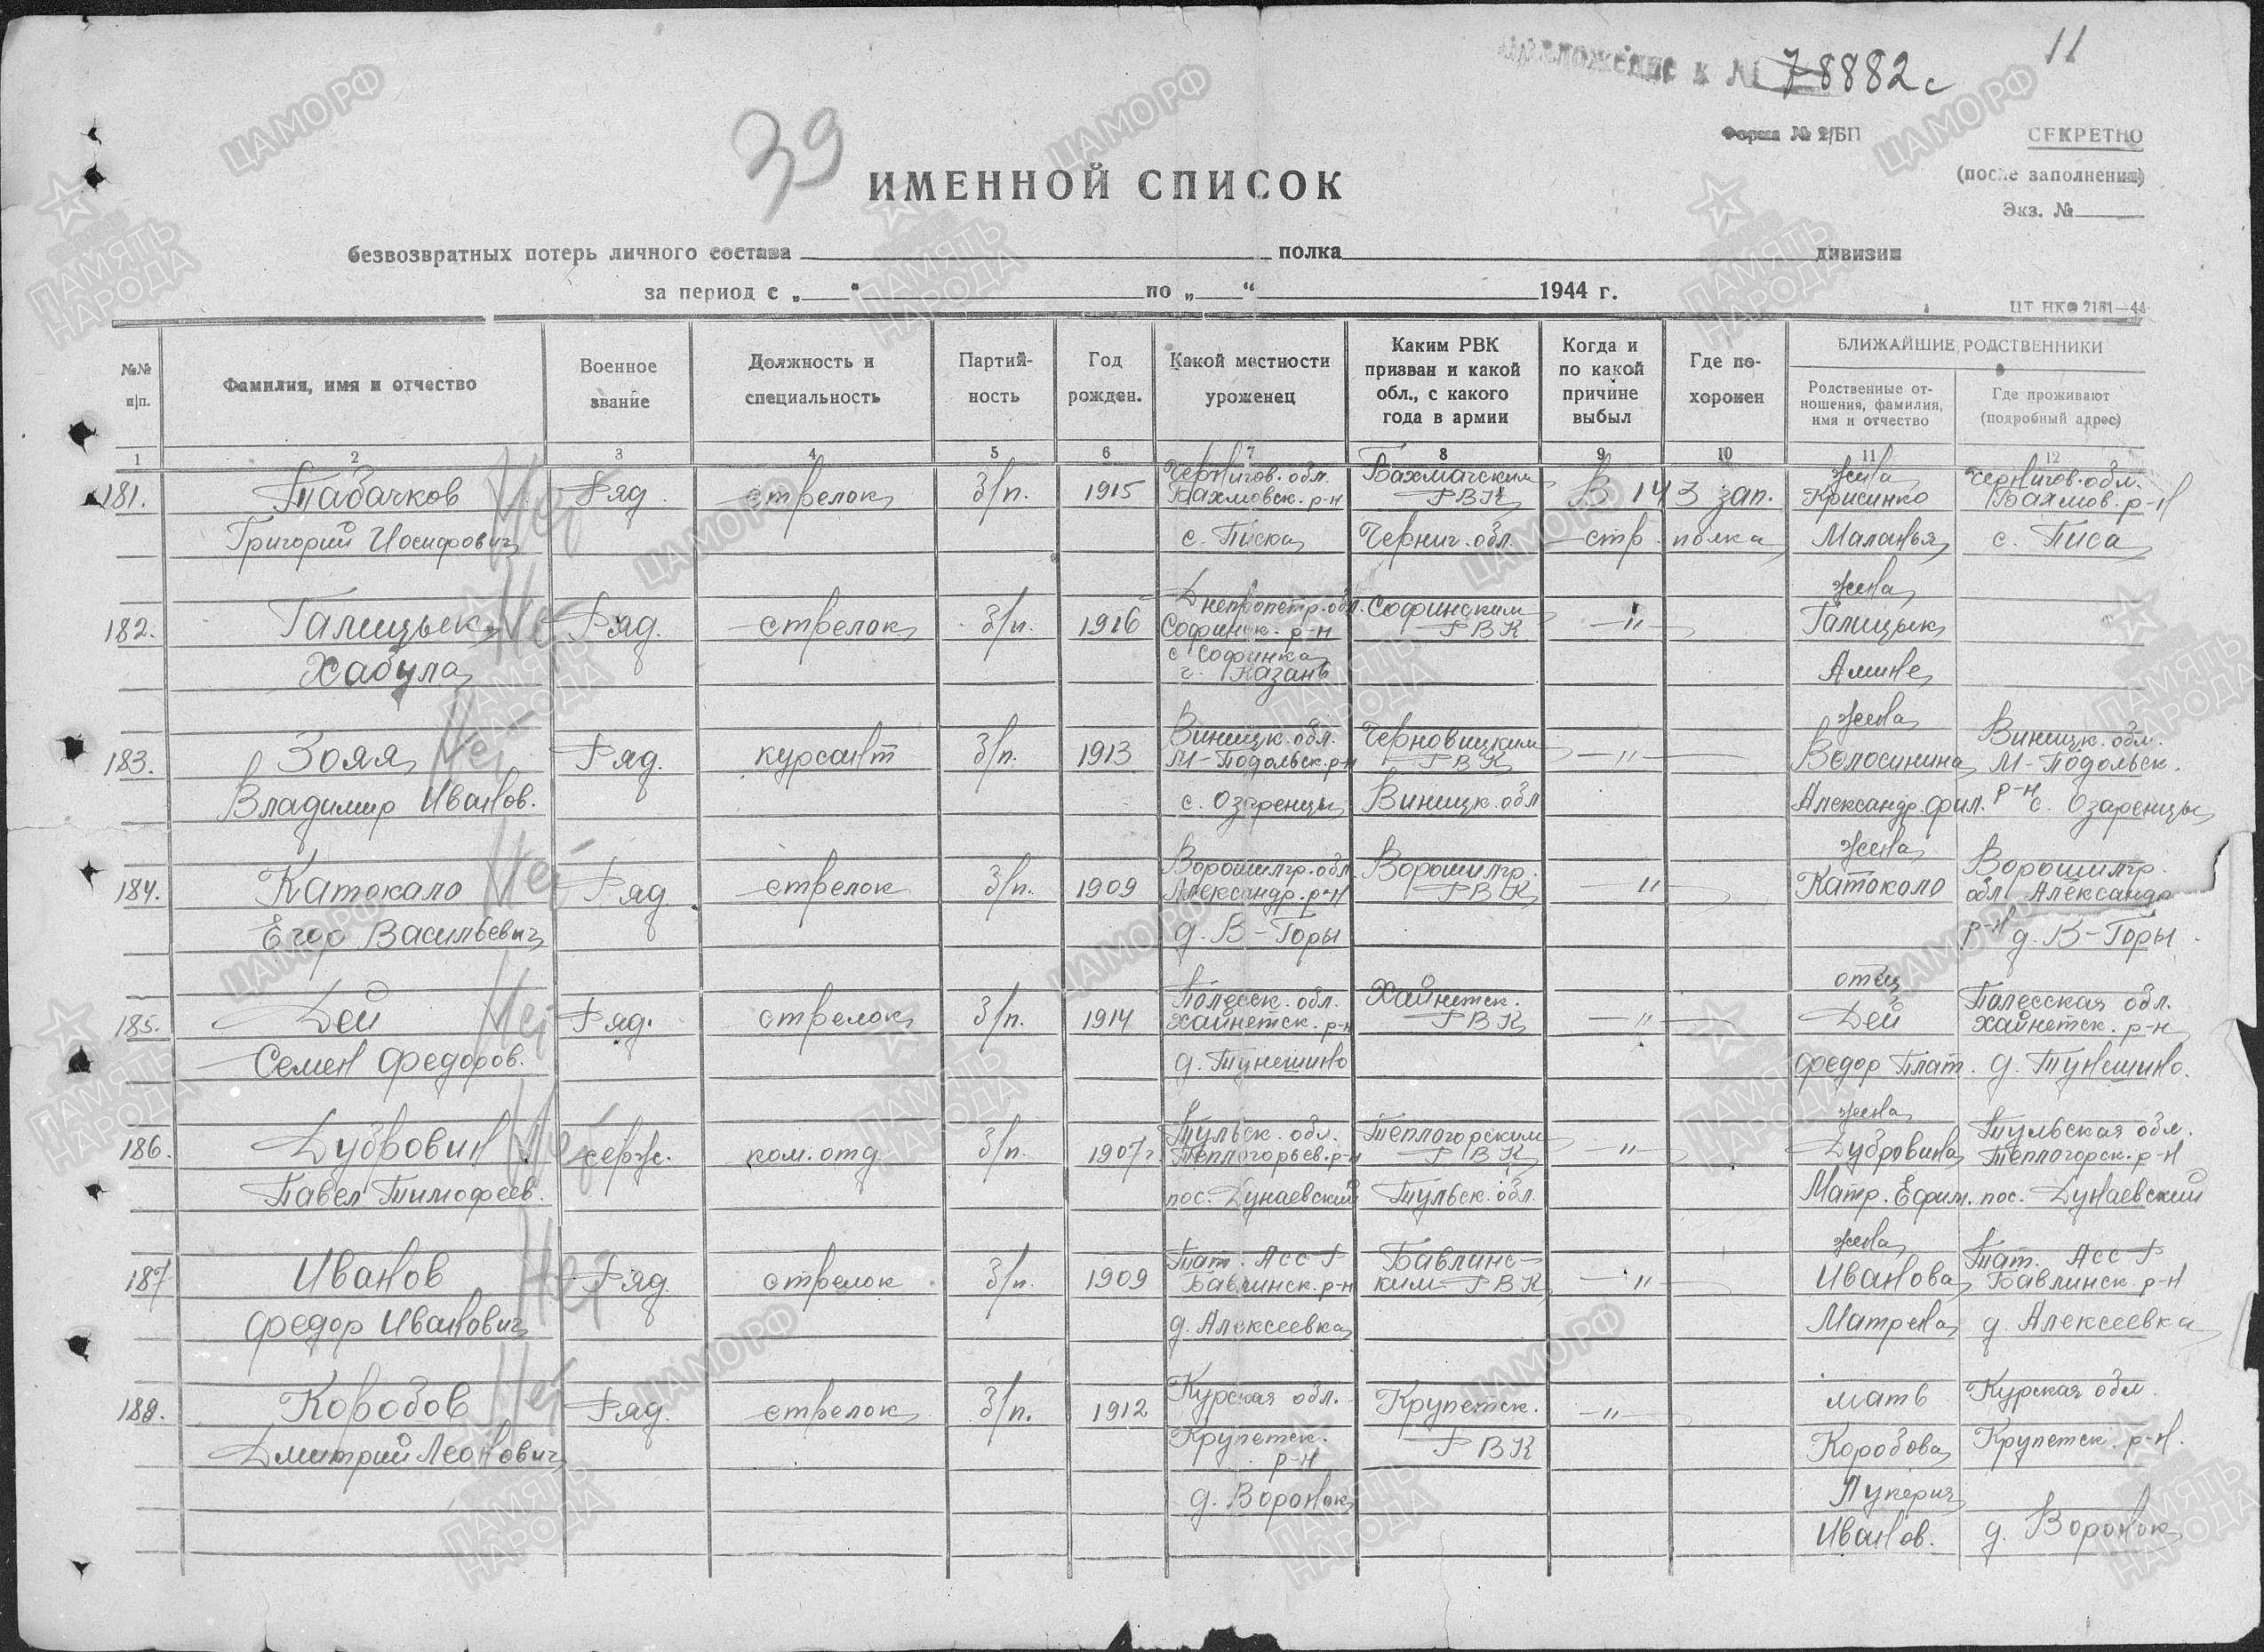 11
Приложение к № 78882с
39
Форма № 2/БП
СЕКРЕТНО
(после заполнения)
Экз. №
ИМЕННОЙ СПИСОК
безвозвратных потерь личного состава полка дивизии
за период с „ “ по „ “ 1944 г.
ЦТ НКО 7181—44
№№ п/п.
Фамилия, имя и отчество
Военное звание
Должность и специальность
Партийность
Год рожден.
Какой местности уроженец
Каким РВК призван и какой обл., с какого года в армии
Когда и по какой причине выбыл
Где похоронен
БЛИЖАЙШИЕ РОДСТВЕННИКИ
Родственные отношения, фамилия, имя и отчество
Где проживают (подробный адрес)
1 2 3 4 5 6 7 8 9 10 11 12
Чернигов. обл. Бахмачским жена Чернигов. обл.
181. Табачков Ряд. стрелок б/п. 1915 Бахмовск. р-н РВК В 143 зап. Крисинко Бахмов. р-н
Григорий Иосифович с. Писка Черниг. обл. стр. полка Маланья с. Писа
Днепропетр. обл. Софинским жена
182. Галицык Ряд. стрелок б/п. 1916 Софинск. р-н РВК —"— Галицык
Хабула с. Софинка г. Казань Амине
Виницк. обл. Черновицким жена Виницк. обл.
183. Зояя Ряд. курсант б/п. 1913 М-Подольск. р-н РВК —"— Волосинина М-Подольск.
Владимир Иванов. с. Озаренцы Виницк. обл Александр. фил. р-н с. Озаренцы
Ворошилгр. обл. Ворошилгр. жена Ворошилгр.
184. Катокало Ряд стрелок б/п. 1909 Александр. р-н РВК —"— Катоколо обл. Александр
Егор Васильевич д. В-Горы р-н д. В-Горы
Полесск. обл. Хайнетск. отец Полесская обл.
185. Дей Ряд. стрелок б/п. 1914 Хайнетск. р-н РВК —"— Дей Хайнетск. р-н
Семен Федоров. д. Тунешино Федор Плат. д. Тунешино.
Тульск. обл. Теплогорским жена Тульская обл.
186. Дубровин серж. ком. отд б/п. 1907г. Теплогорьев. р-н РВК —"— Дубровина Теплогорск. р-н
Павел Тимофеев. пос. Дунаевский Тульск. обл. Матр. Ефим. пос. Дунаевский
Тат. АССР Бавлинс- жена Тат. АССР
187 Иванов Ряд. стрелок б/п. 1909 Бавлинск. р-н ким РВК —"— Иванова Бавлинск р-н
Федор Иванович д. Алексеевка Матрена д. Алексеевка
188. Коробов Ряд. стрелок б/п. 1912 Курская обл. Крупетск. —"— мать Курская обл.
Дмитрий Леонович Крупетск. р-н РВК Коробова Крупетск. р-н.
д. Воронок Лукерия
Иванов. д. Воронок